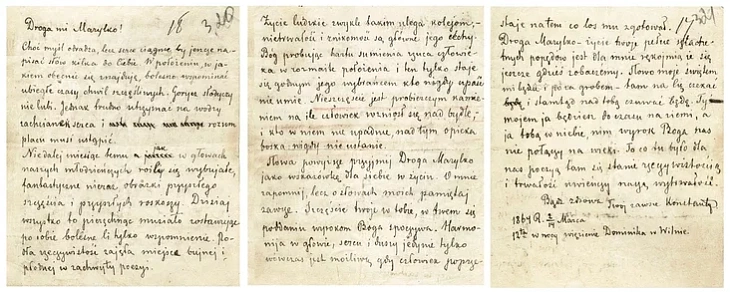 Droga mi Marylko!
Choć myśl odradza, lecz serce ciągnie by jeszcze na-
pisać słów kilka do Ciebie. W położeniu, w ja-
kiem obecnie się znajduję, boleśnie wspominać
ubiegłe czasy chwil szczęśliwych. Gorycz słodyczy
nie lubi. Jednak trudno utrzymać na wodzy
serca i rozum
płacu musi ustąpić.
Niedalej miesiąc temu jak w głowach
naszych młodzieńczych roiły się wybujałe,
fantastyczne nieraz obrazki przyszłego
szczęścia i przyszłych roskoszy. Dzisiaj
wszystko to pierzchnąć musiało zostawując
po sobie bolesne li tylko wspomnienie. Po-
dła rzeczywistość zajęła miejsce bujnej i
płodnej w zachwyty poezyi.
Życie ludzkie zwykle takim ulega kolejom,
nietrwałość i znikomość są główne jego cechy.
Bóg probując hartu sumienia rzuca człowie-
ka w rozmaite położenia i ten tylko staje
się godnym jego wybrańcem kto nigdy upaść
nie umie. Nieszczęście jest probierczym kamie-
niem na ile człowiek wzniósł się nad bydlę,
i kto w niem nie upadnie nad tym opieka
boska nigdy nie ustanie.
Słowa powyższe przyjmij Droga Marylko
jako wskazówkę dla siebie w życiu. O mnie
zapomnij, lecz o słowach moich pamiętaj
zawsze. Szczęście twoje w tobie, w Twem
poddaniu wyrokom Boga spoczywa. Harmo-
nija w głowie, sercu i duszy jedynie tylko
wówczas jest możliwą gdy człowiek poprze-
staje na tem co los mu zgotował.
Droga Marylko – życie twoje pełne szlachet-
nych popędów jest dla mnie rękojmią że się
jeszcze gdzieś zobaczemy. Słowo moje świętem
mi będzie i poza grobem – tam na Cię czekać
będę i stamtąd nad tobą czuwać będę. Ty
mojem ja będziem do czasu na ziemi, a
ja tobą w niebie, nim wyrok Boga nas
nie połączy na wieki. To co tu było dla
nas poezyą tam się stanie rzeczywistością
i trwałość uwieńczy naszą wytrwałość.
Bądź zdrowa Twój zawsze Konstanty
1864 R. Marca
w nocy więzienie Dominika w Wilnie.